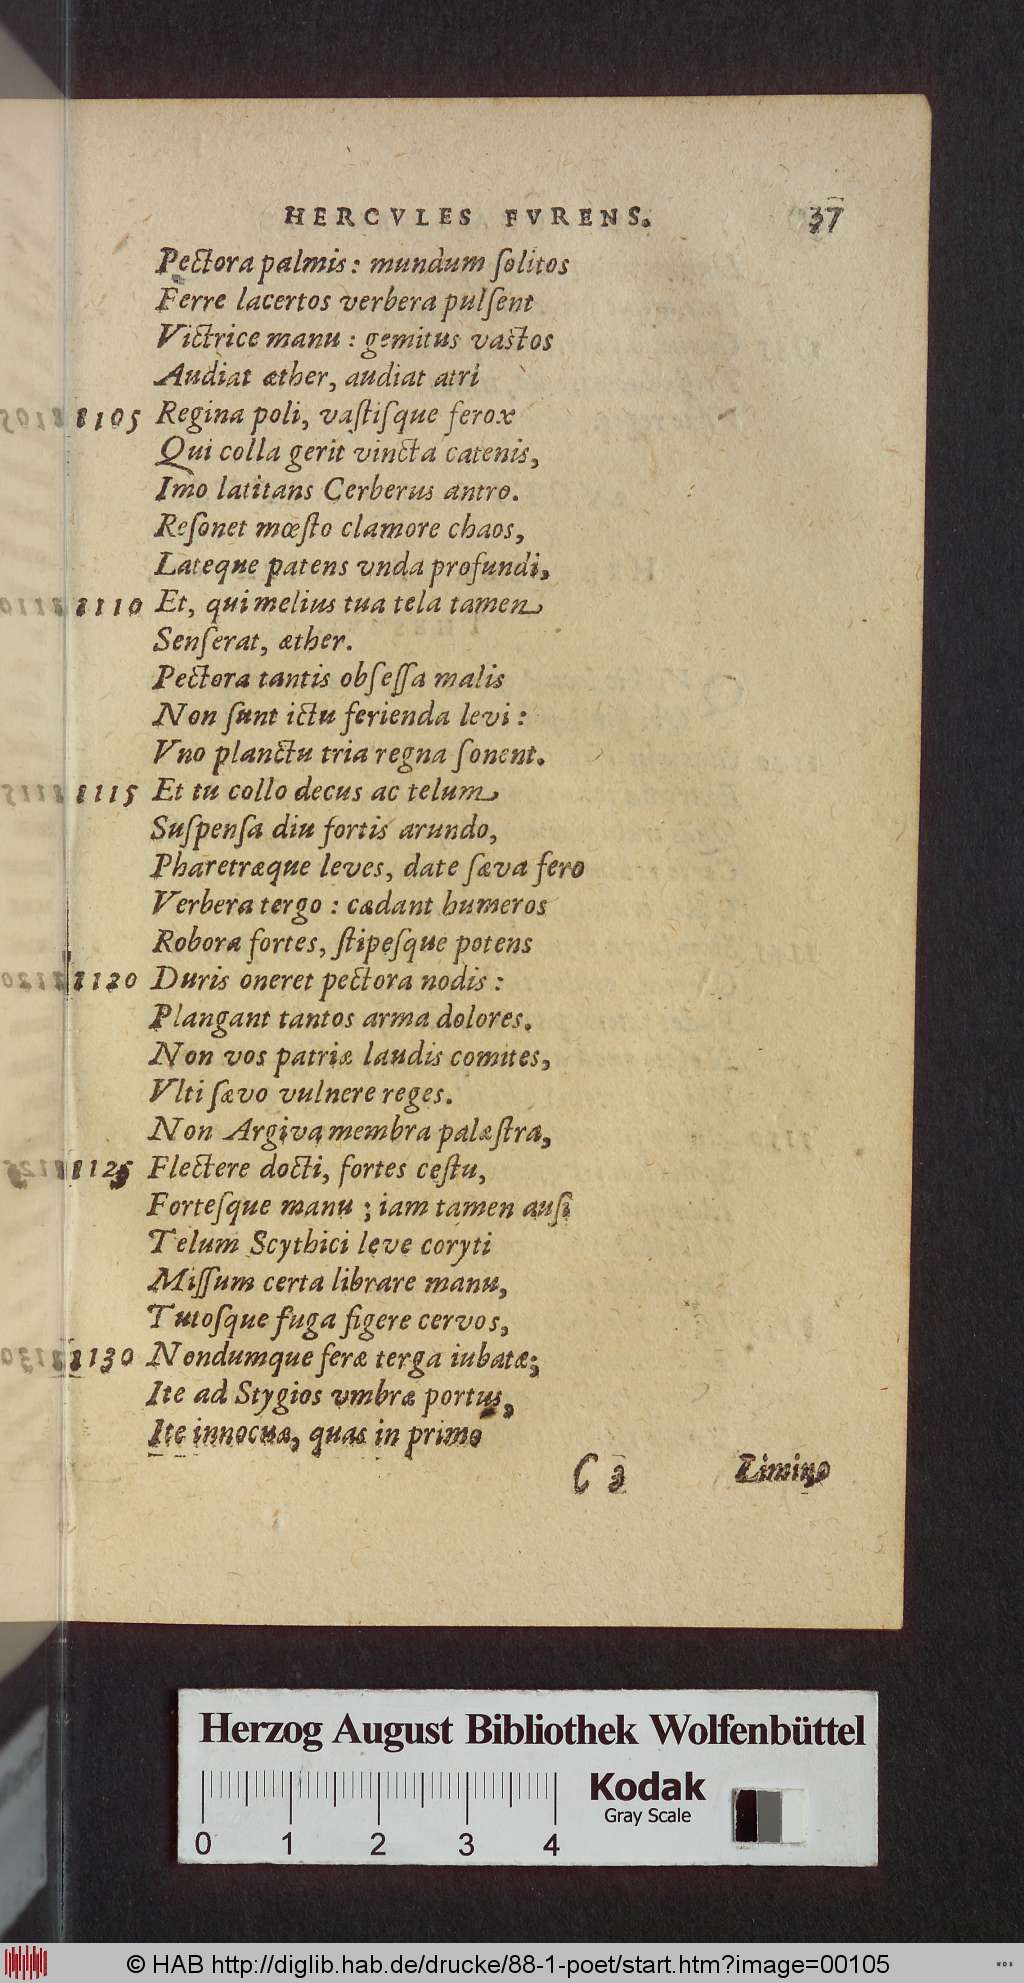 HERCVLES FVRENS. 37
Pectora palmis: mundum ſolitos
Ferre lacertos verbera pulſent
Victrice manu: gemitus vastos
Audiat æther, audiat atri
1105 Regina poli, vaſtiſque ferox
Qui colla gerit vincta catenis,
Imo latitans Cerberus antro.
Reſonet mœſto clamore chaos,
Lateque patens vnda profundi,
1110 Et, qui melius tua tela tamen
Senſerat, æther.
Pectora tantis obſeſſa malis
Non ſunt ictu ferienda levi:
Vno planctu tria regna ſonent.
1115 Et tu collo decus ac telum
Suſpenſa diu fortis arundo,
Pharetræque leves, date ſæva fero
Verbera tergo: cædant humeros
Robora fortes, ſtipeſque potens
1120 Duris oneret pectora nodis:
Plangant tantos arma dolores.
Non vos patriæ laudis comites,
Vlti ſævo vulnere reges.
Non Argiva membra palæſtra,
1125 Flectere docti, fortes ceſtu,
Forteſque manu; iam tamen auſi
Telum Scythici leve coryti
Miſſum certa librare manu,
Tutoſque fuga figere cervos,
1130 Nondumque feræ terga iubatæ;
Ite ad Stygios vmbræ portus,
Ite innocuæ, quas in primo
C 3 Limino
Herzog August Bibliothek Wolfenbüttel
Kodak
Gray Scale
0 1 2 3 4
© HAB http://diglib.hab.de/drucke/88-1-poet/start.htm?image=00105